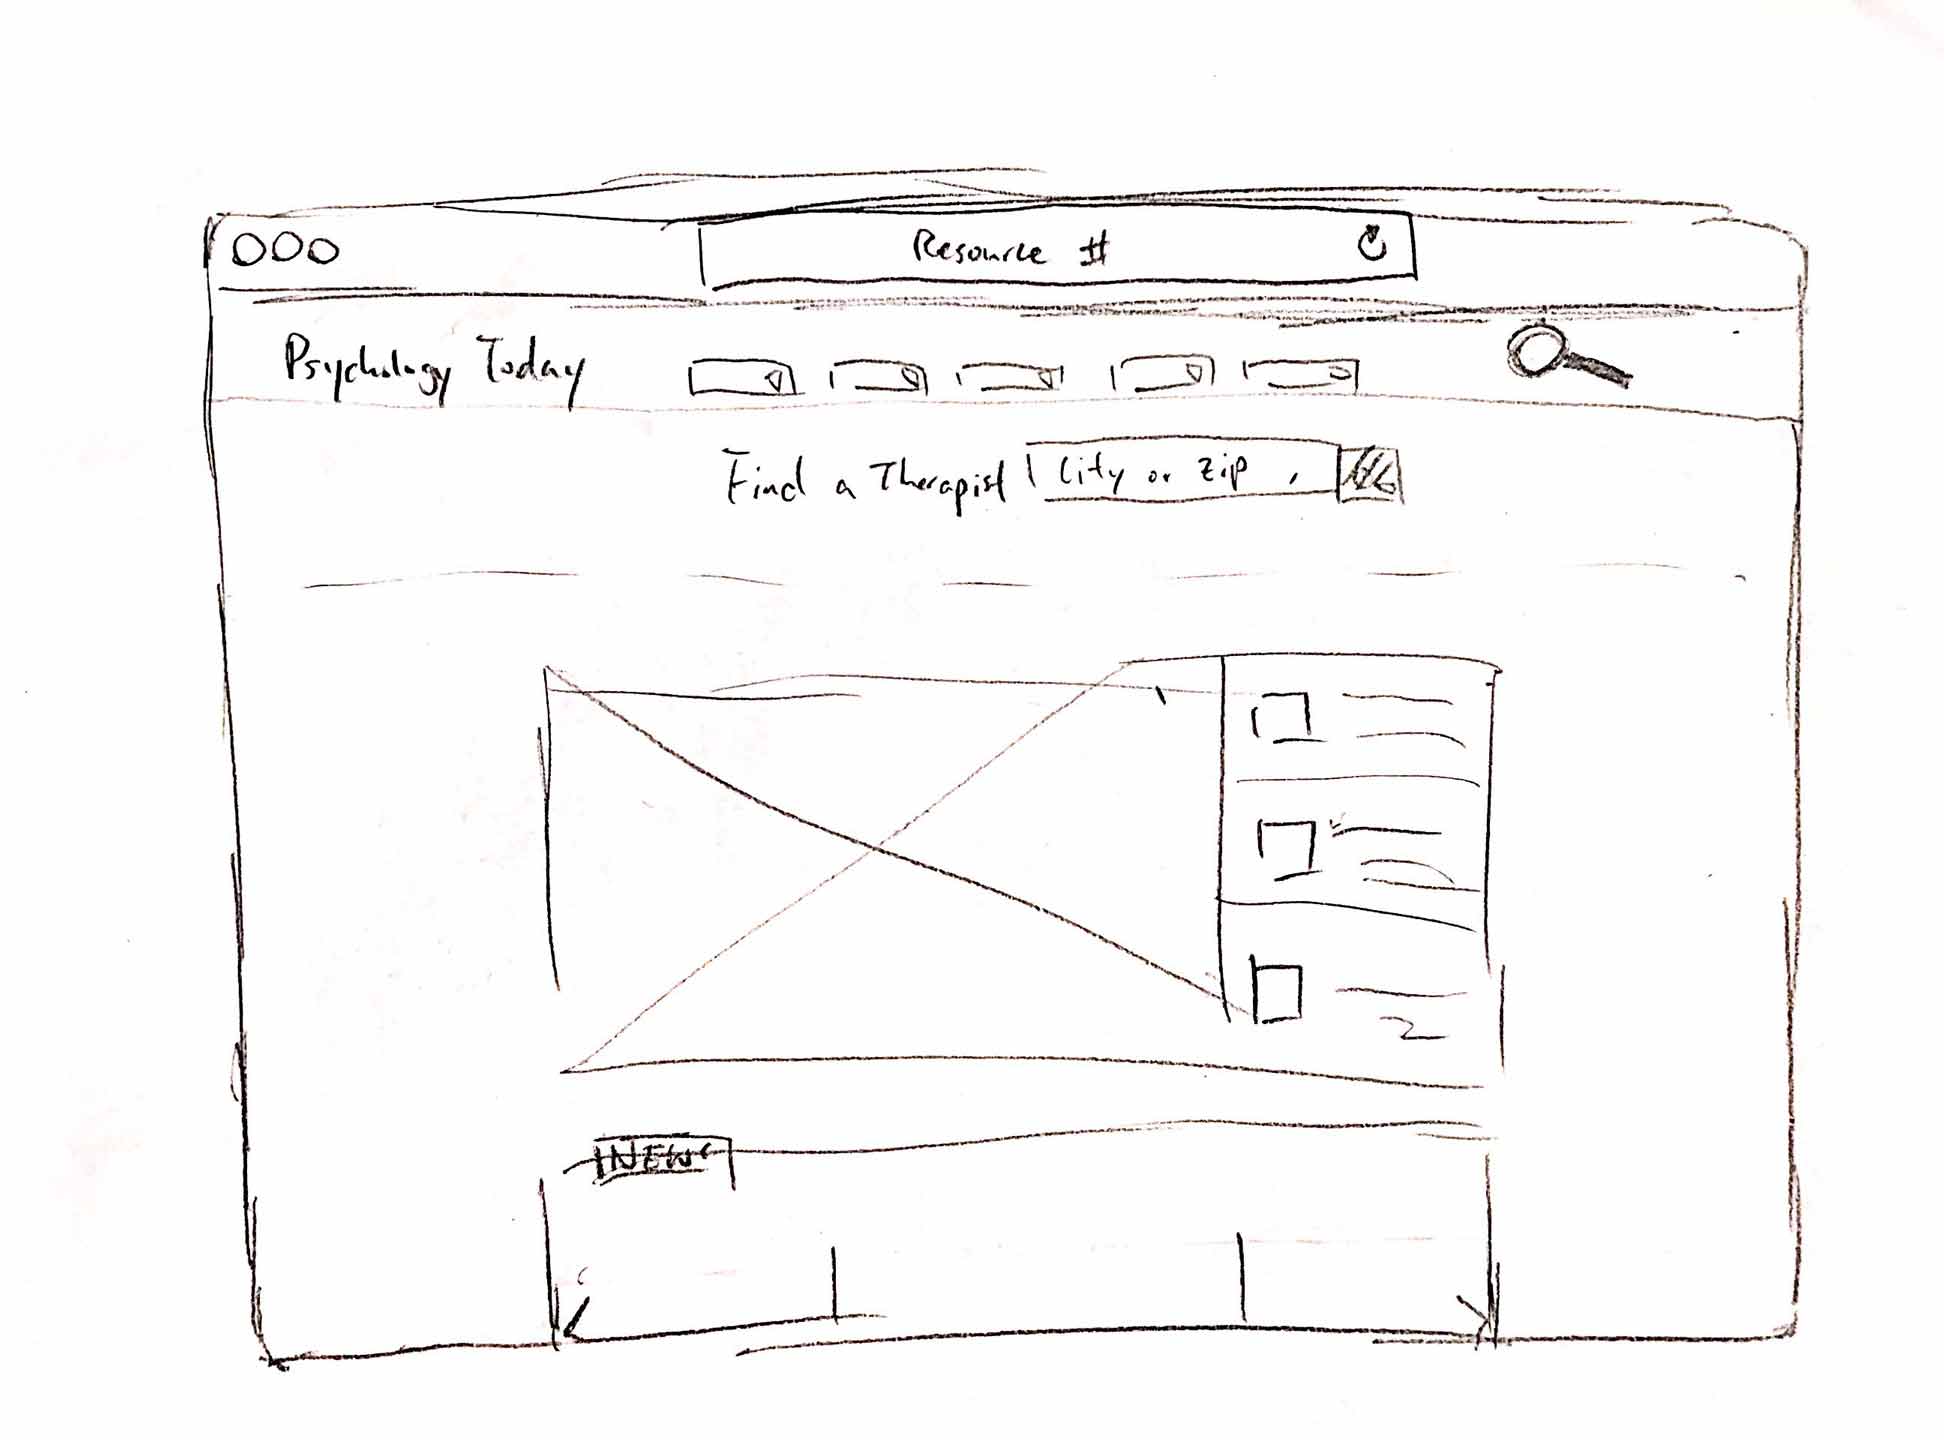 Resource #
Psychology Today
Find a Therapist City or Zip
NEWS